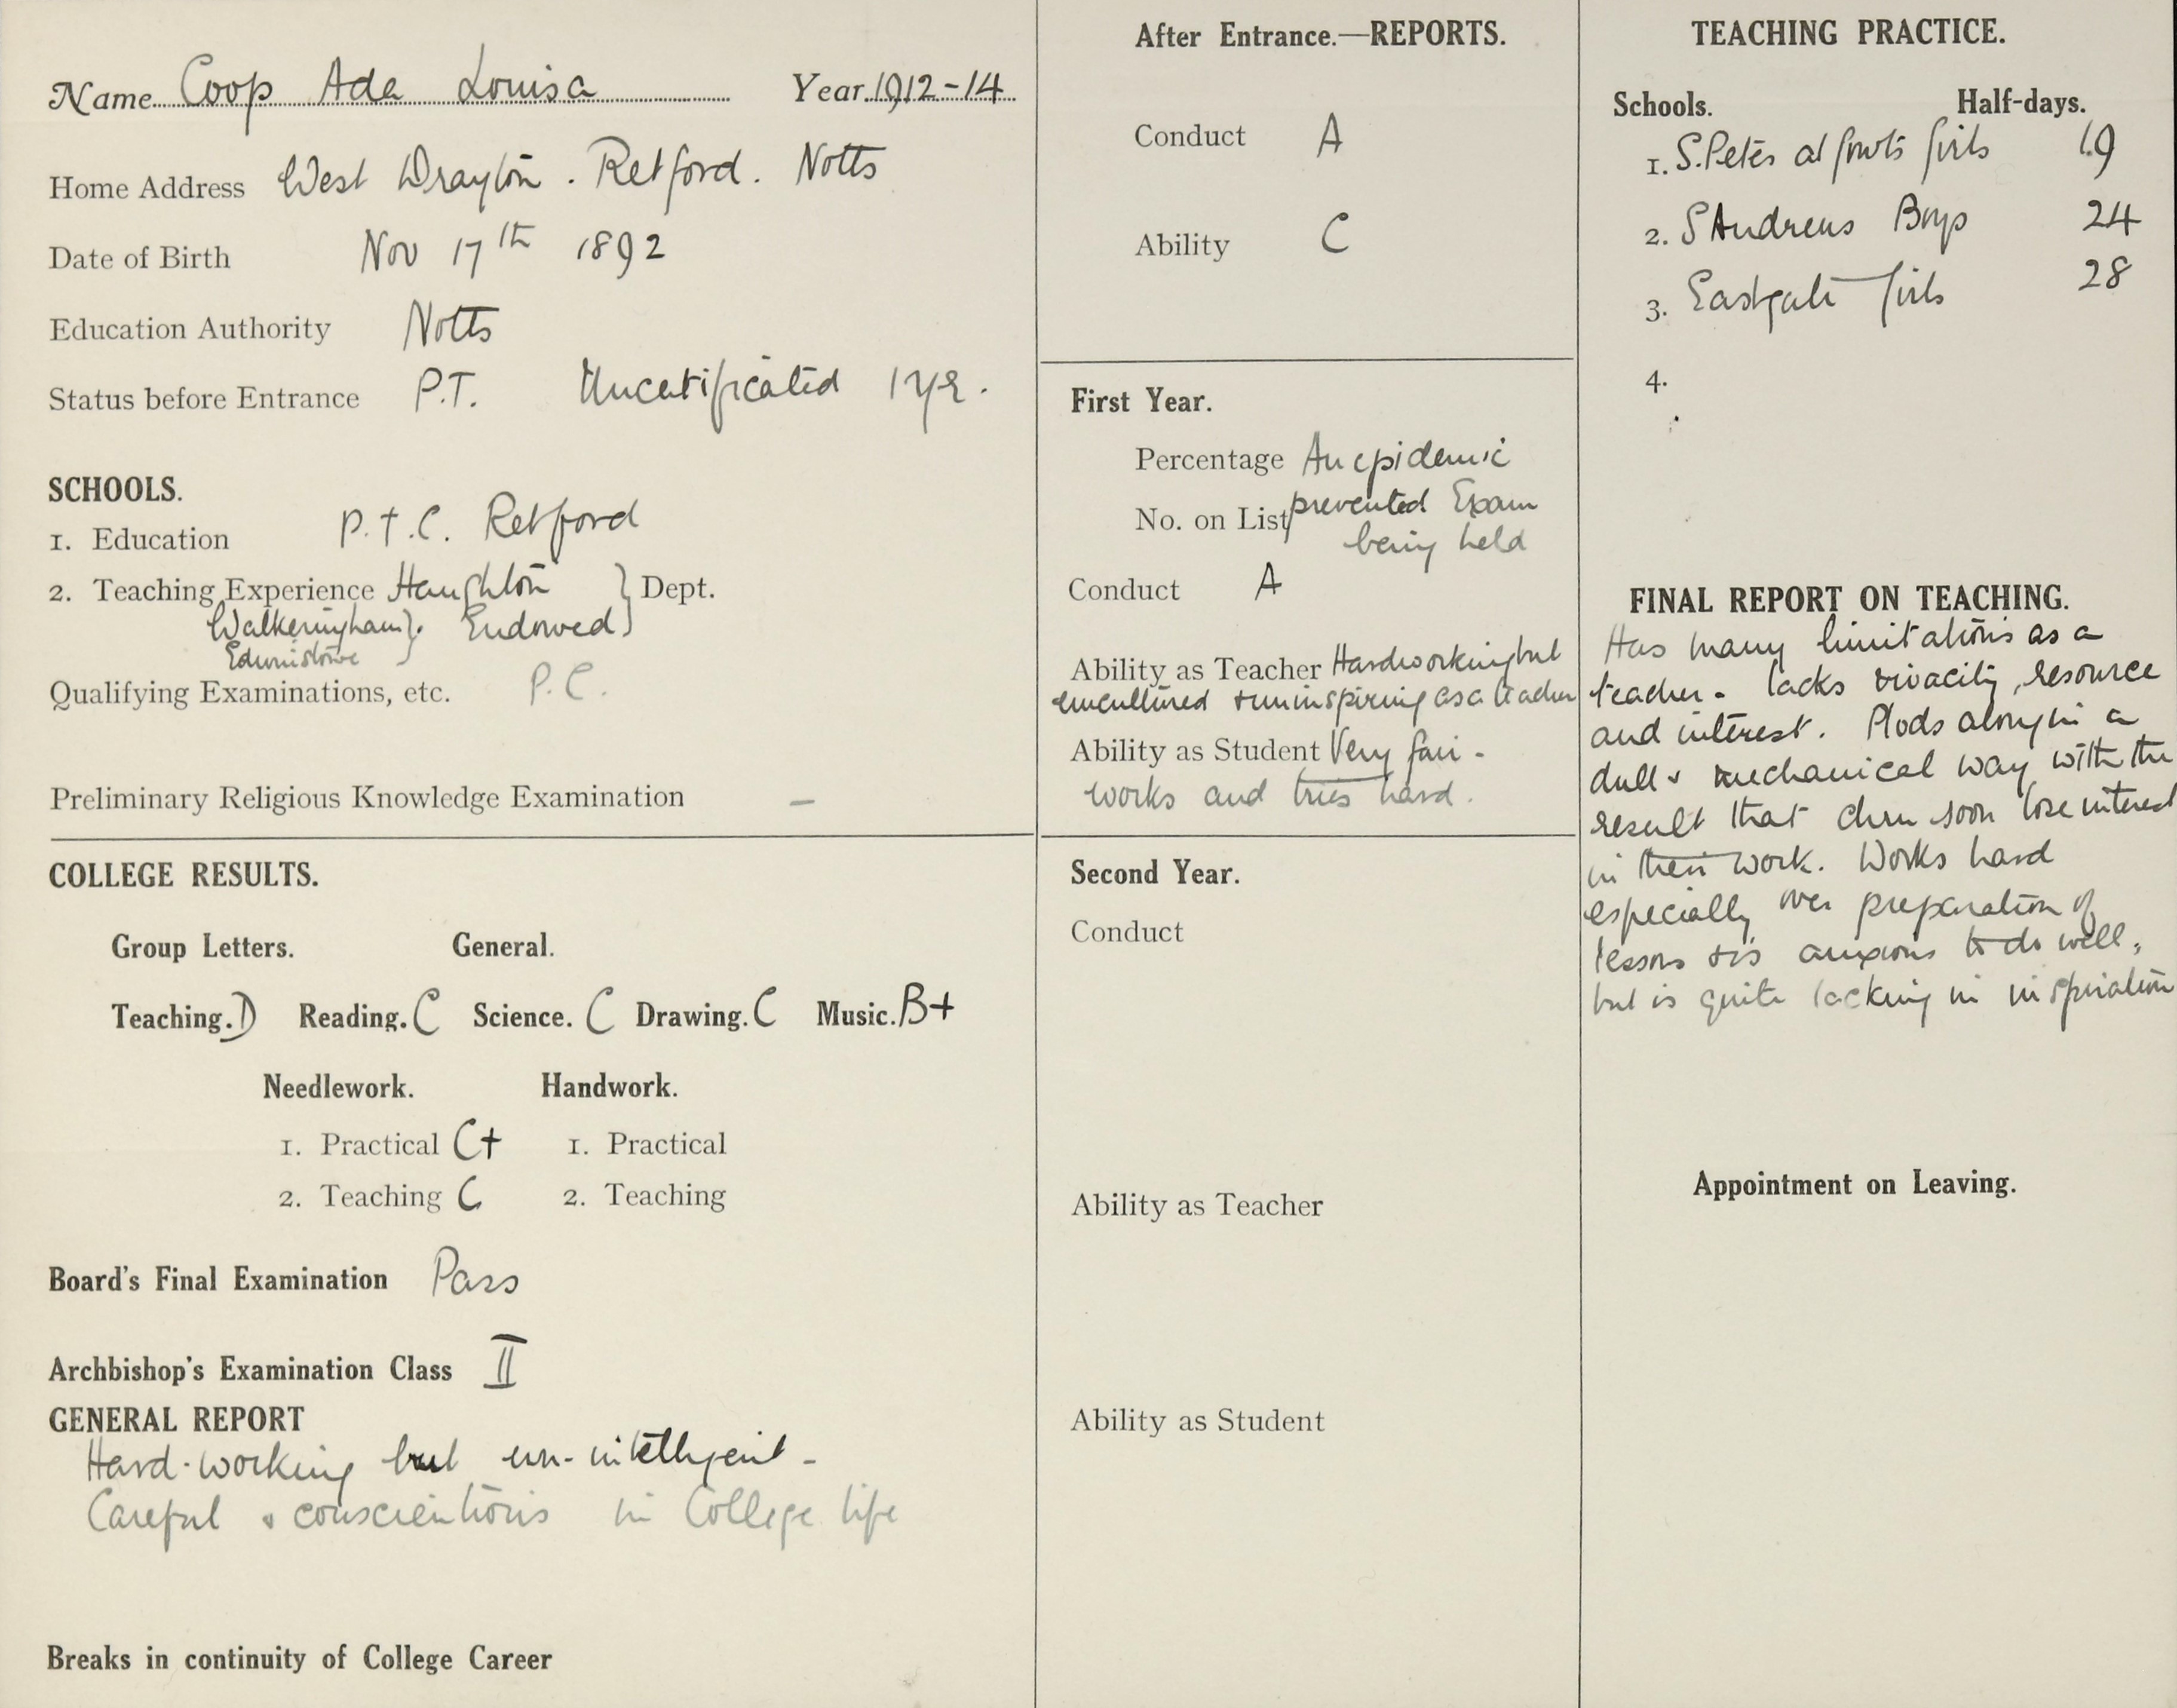 Name Coop Ada Louisa Year 1912-14
Home Address West Drayton . Retford . Notts
Date of Birth Nov 17th 1892
Education Authority Notts
Status before Entrance P.T. Uncertificated 1 yr .
SCHOOLS.
1. Education P.T.C. Retford
2. Teaching Experience Haughton } Dept.
Walkeringham } . Endowed }
Edwinstowe
Qualifying Examinations, etc. P.C.
Preliminary Religious Knowledge Examination –
COLLEGE RESULTS.
Group Letters. General.
Teaching. D Reading. C Science. C Drawing. C Music. B+
Needlework. Handwork.
1. Practical C+ 1. Practical
2. Teaching C 2. Teaching
Board's Final Examination Pass
Archbishop's Examination Class II
GENERAL REPORT
Hard-working but un-intelligent -
Careful & conscientious in College life
Breaks in continuity of College Career
After Entrance.—REPORTS.
Conduct A
Ability C
First Year.
Percentage An epidemic
No. on List prevented Exam
being held
Conduct A
Ability as Teacher Hardworking but
uncultured & uninspiring as a teacher
Ability as Student Very fair -
works and tries hard .
Second Year.
Conduct
Ability as Teacher
Ability as Student
TEACHING PRACTICE.
Schools. Half-days.
1. S. Peter's at Gowts Girls 19
2. S Andrews Boys 24
3. Eastgate Girls 28
4.
FINAL REPORT ON TEACHING.
Has many limitations as a
teacher - lacks vivacity, resource
and interest. Plods along in a
dull & mechanical way with the
result that chrn soon lose interest
in their work. Works hard
especially over preparation of
lessons & is anxious to do well,
but is quite lacking in inspiration
Appointment on Leaving.